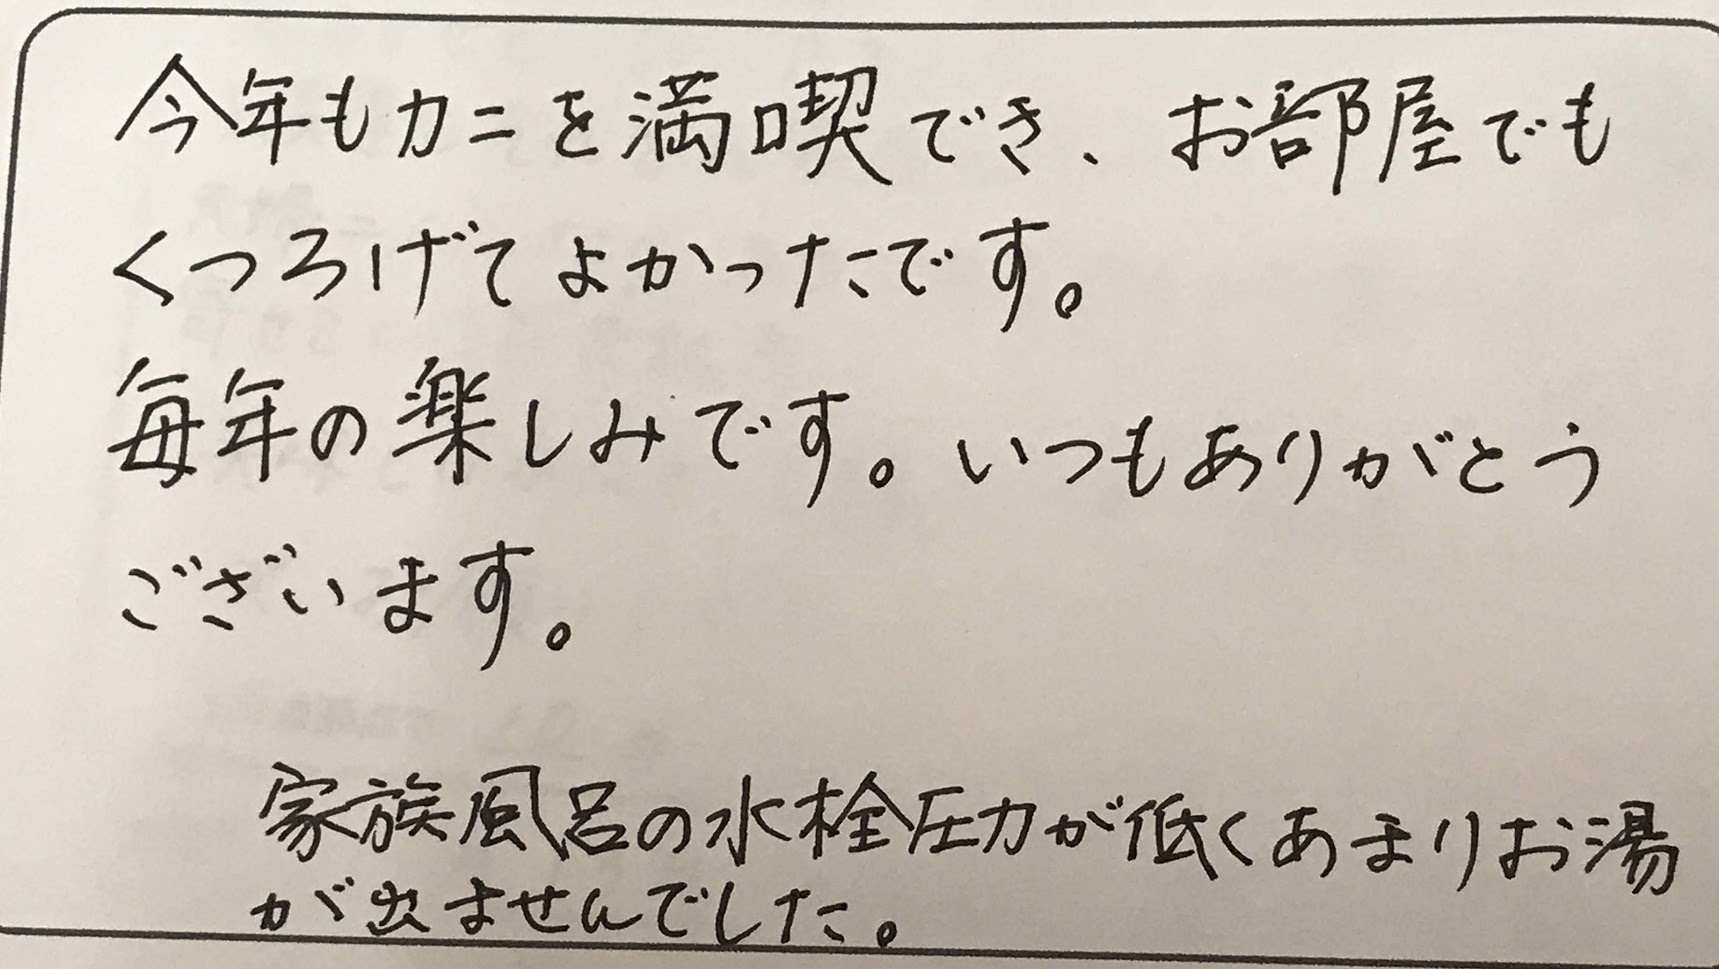 今年もカニを満喫でき、お部屋でも
くつろげてよかったです。
毎年の楽しみです。いつもありがとう
ございます。
家族風呂の水栓圧力が低くあまりお湯
が出ませんでした。